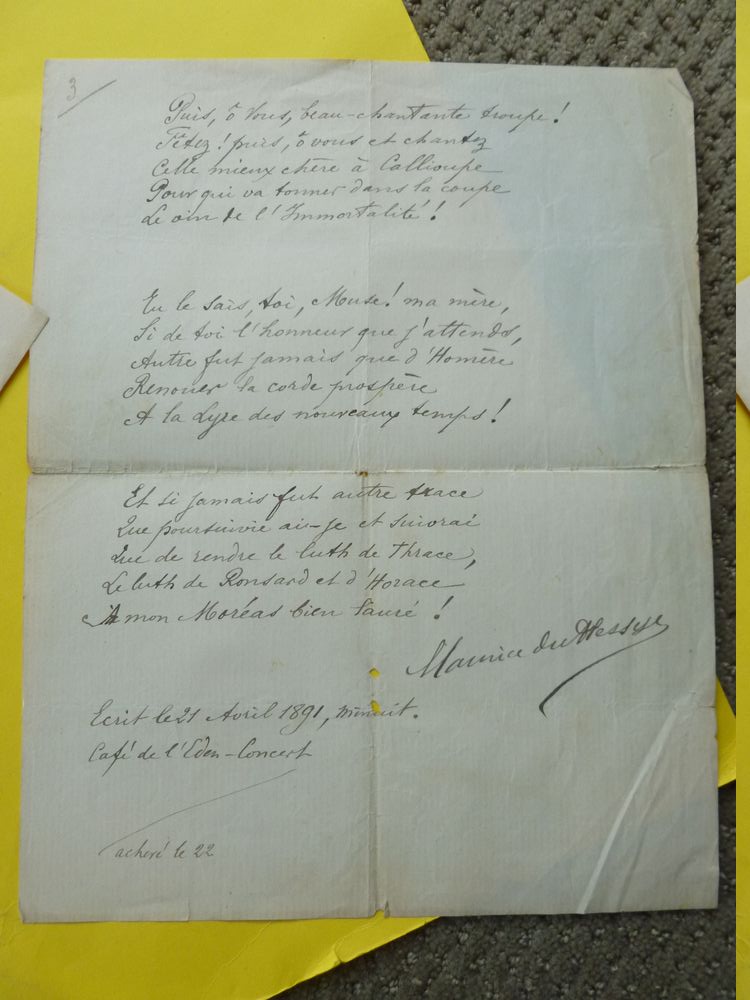 3
Puis, ô vous, beau-chantante troupe!
Fêtez! puis, ô vous et chantez
Celle mieux chère à Callioupe
Pour qui va tonner dans la coupe
Le vin de l'Immortalité!
Tu le sais, toi, Muse! ma mère,
Si de toi l'honneur que j'attends,
Autre fut jamais que d'Homère
Renouer la corde prospère
A la Lyre des nouveaux temps!
Et si jamais fut autre trace
Que poursuivie ai-je et suivrai
Que de rendre le luth de Thrace,
Le luth de Ronsard et d'Horace
A mon Moréas bien lauré!
Maurice du Plessys
Ecrit le 21 Avril 1891, minuit.
Café de l'Eden-Concert
achevé le 22